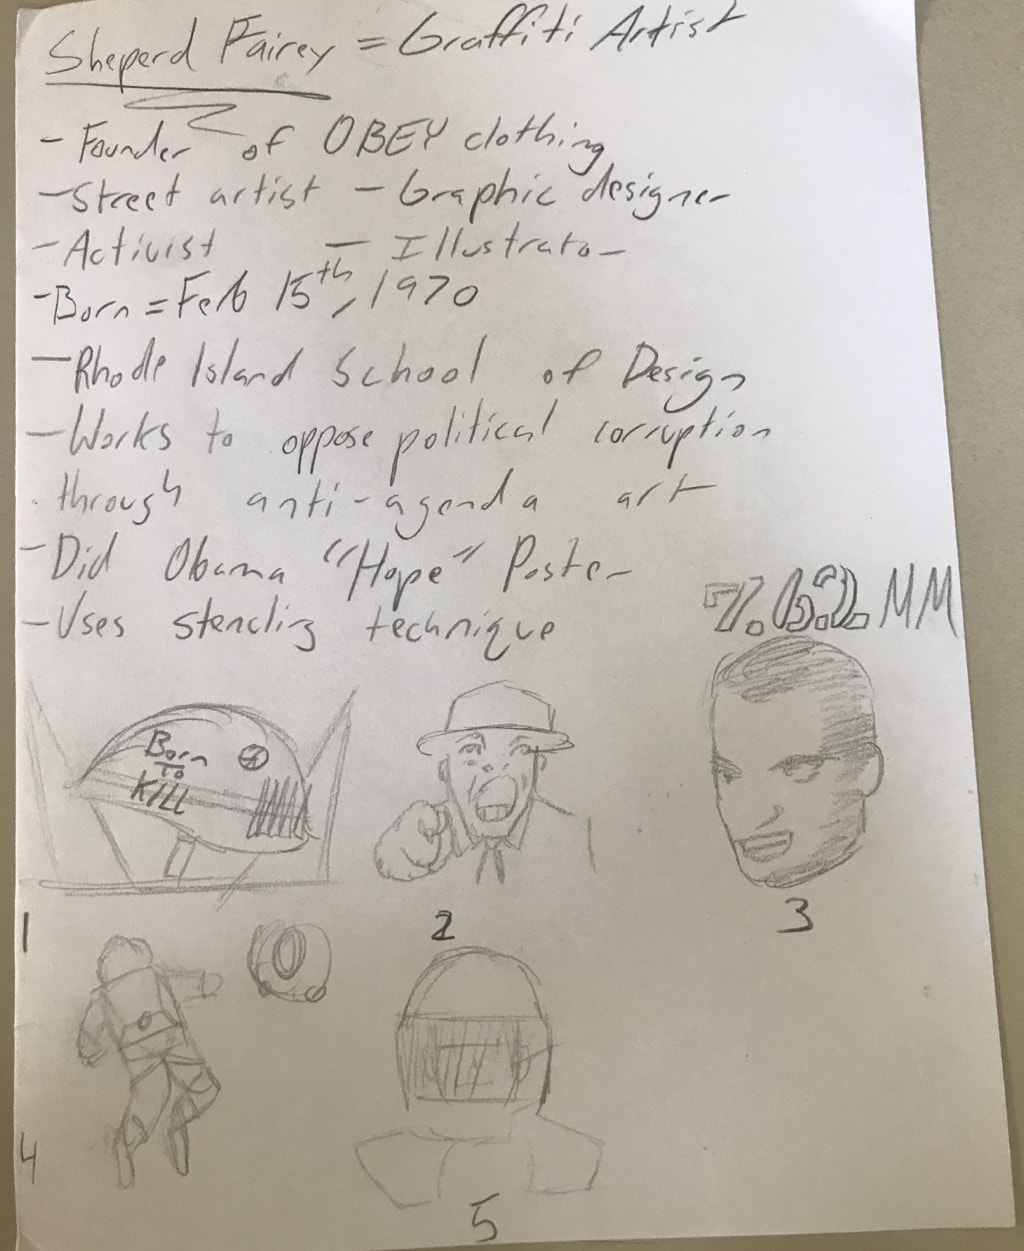 Sheperd Fairey = Graffiti Artist
- Founder of OBEY clothing
- Street artist - Graphic designer
- Activist - Illustrator
- Born = Feb 15th, 1970
- Rhode Island School of Design
- Works to oppose political corruption
through anti-agenda art
- Did Obama "Hope" Poster
- Uses stencling technique
7.62 MM
Born
To
Kill
1
2
3
4
5